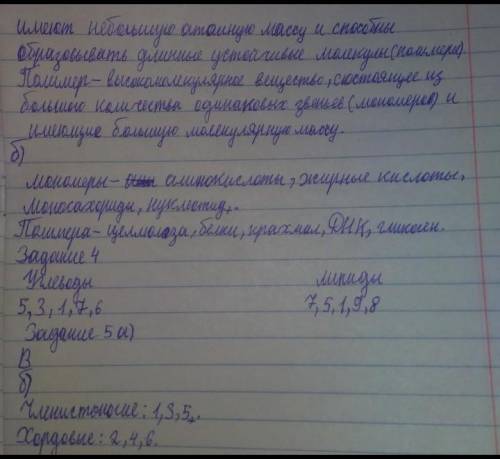 имеют небольшую атомную массу и способны
образовывать длинные устойчивые молекулы (полимеры)
Полимер - высокомолекулярное вещество, состоящее из
большого количества одинаковых звеньев (мономеров) и
имеющие большую молекулярную массу.
б)
мономеры - аминокислоты, жирные кислоты,
моносахориды, нуклеотид.
Полимера - целлюлоза, белки, крахмал, ДНК, гликоген.
Задание 4
Углеводы липиды
5, 3, 1, 7, 6 7, 5, 1, 9, 8
Задание 5 а)
В
б)
Членистоногие: 1, 3, 5.
Хордовые: 2, 4, 6.